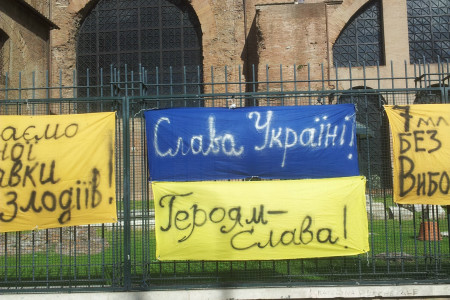 аємо
ної
авки
злодіїв!
Слава Україні!
Героям-
слава!
БЕЗ
Вибо